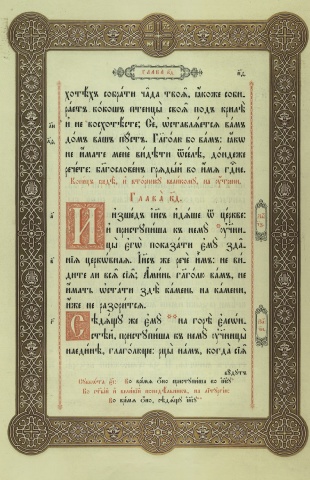 ГЛАВА к҃д
хотѣхъ собрати чѧда твоѧ̑, ꙗкоже соби-
раетъ кокошъ птенцы своѧ̑ подъ крилѣ
и не восхотѣсте; Се, ѡставлѧетсѧ вамъ
домъ вашъ пустъ. Глаголю бо вамъ: ꙗкѡ
не имате мене видѣти ѿселѣ, дондеже
речете: благословенъ грѧдый во имѧ гд҇не.
Конецъ средѣ, и вторнику великому, на оутрени.
ГЛАВА к҃д.
И изшедъ іис҃ъ идѧше ѿ церкве:
и приступиша къ нему оученⷩ҇-
цы егѡ показати ему зда-
нїѧ церкѡвнаѧ. Іис҃ъ же рече имъ: не ви-
дите ли всѧ̑ сїѧ̑; Аминь глаголю вамъ, не
имать ѡстати здѣ камень на камени,
иже не разоритсѧ.
Сѣдѧщу же ему на горѣ елеѡн-
стѣй, приступиша къ нему оученицы
наединѣ, глаголюще: рцы намъ, когда сїѧ̑
будутъ
Во времѧ ѻно приступиша ко іис҃у
Во ст҃ый и великїй понедѣльникъ, на литургїи:
Во времѧ ѻно, сѣдѧщу іис҃у